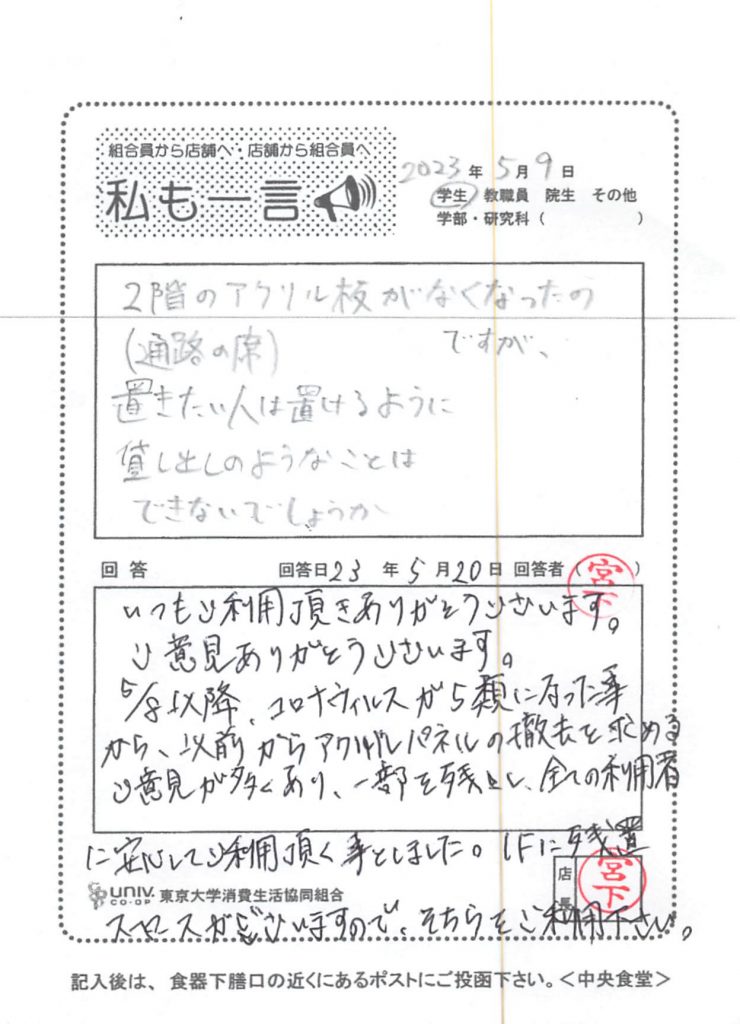 組合員から店舗へ・店舗から組合員へ
私も一言
2023年5月9日
学生 教職員 院生 その他
学部・研究科( )
2階のアクリル板がなくなったの
(通路の席) ですが、
置きたい人は置けるように
貸し出しのようなことは
できないでしょうか
回答 回答日23年5月20日 回答者(宮下)
いつもご利用頂きありがとうございます。
ご意見ありがとうございます。
5/8以降、コロナウィルスが5類になった事
から、以前からアクリルパネルの撤去を求める
ご意見が多くあり、一部を残し、全ての利用者
に安心してご利用頂く事としました。1Fに残置
店長 宮下
UNIV. CO-OP 東京大学消費生活協同組合
スペースがございますので、そちらをご利用下さい。
記入後は、食器下膳口の近くにあるポストにご投函下さい。<中央食堂>